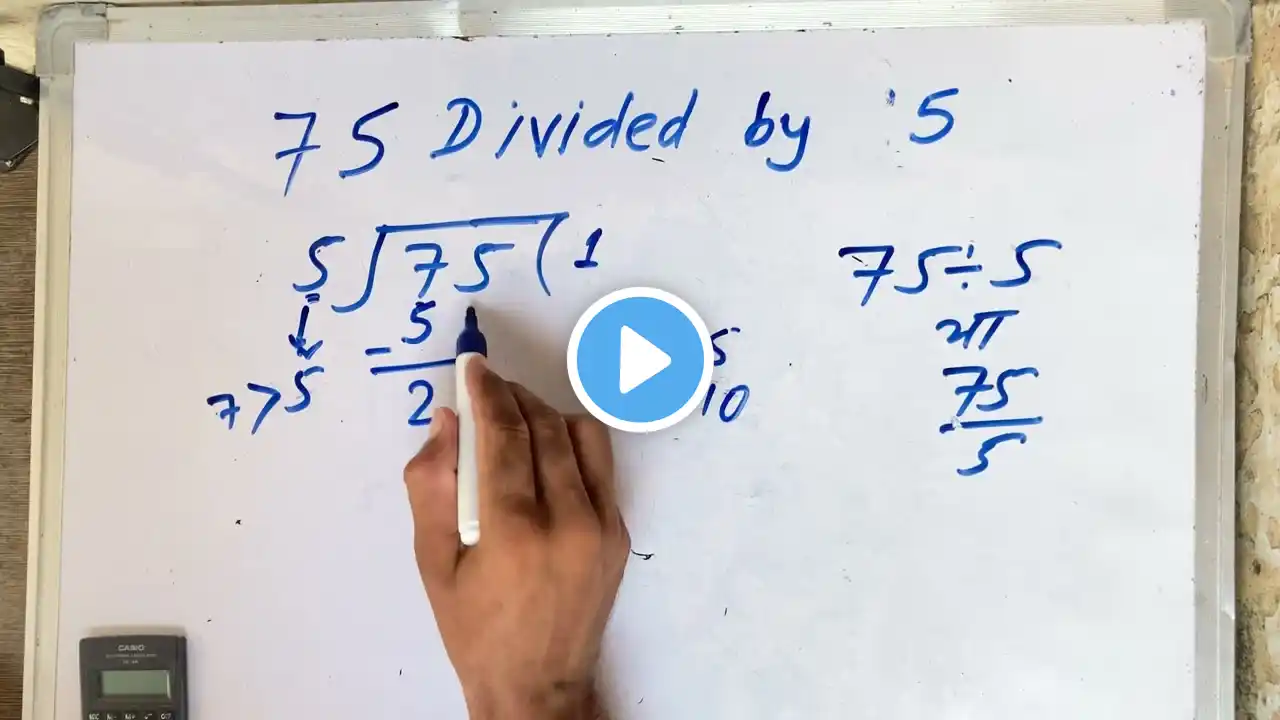 75 Divided by 5
5 75 1
- 5
2
7>5
5
10
75÷5
या
75
5
CASIO